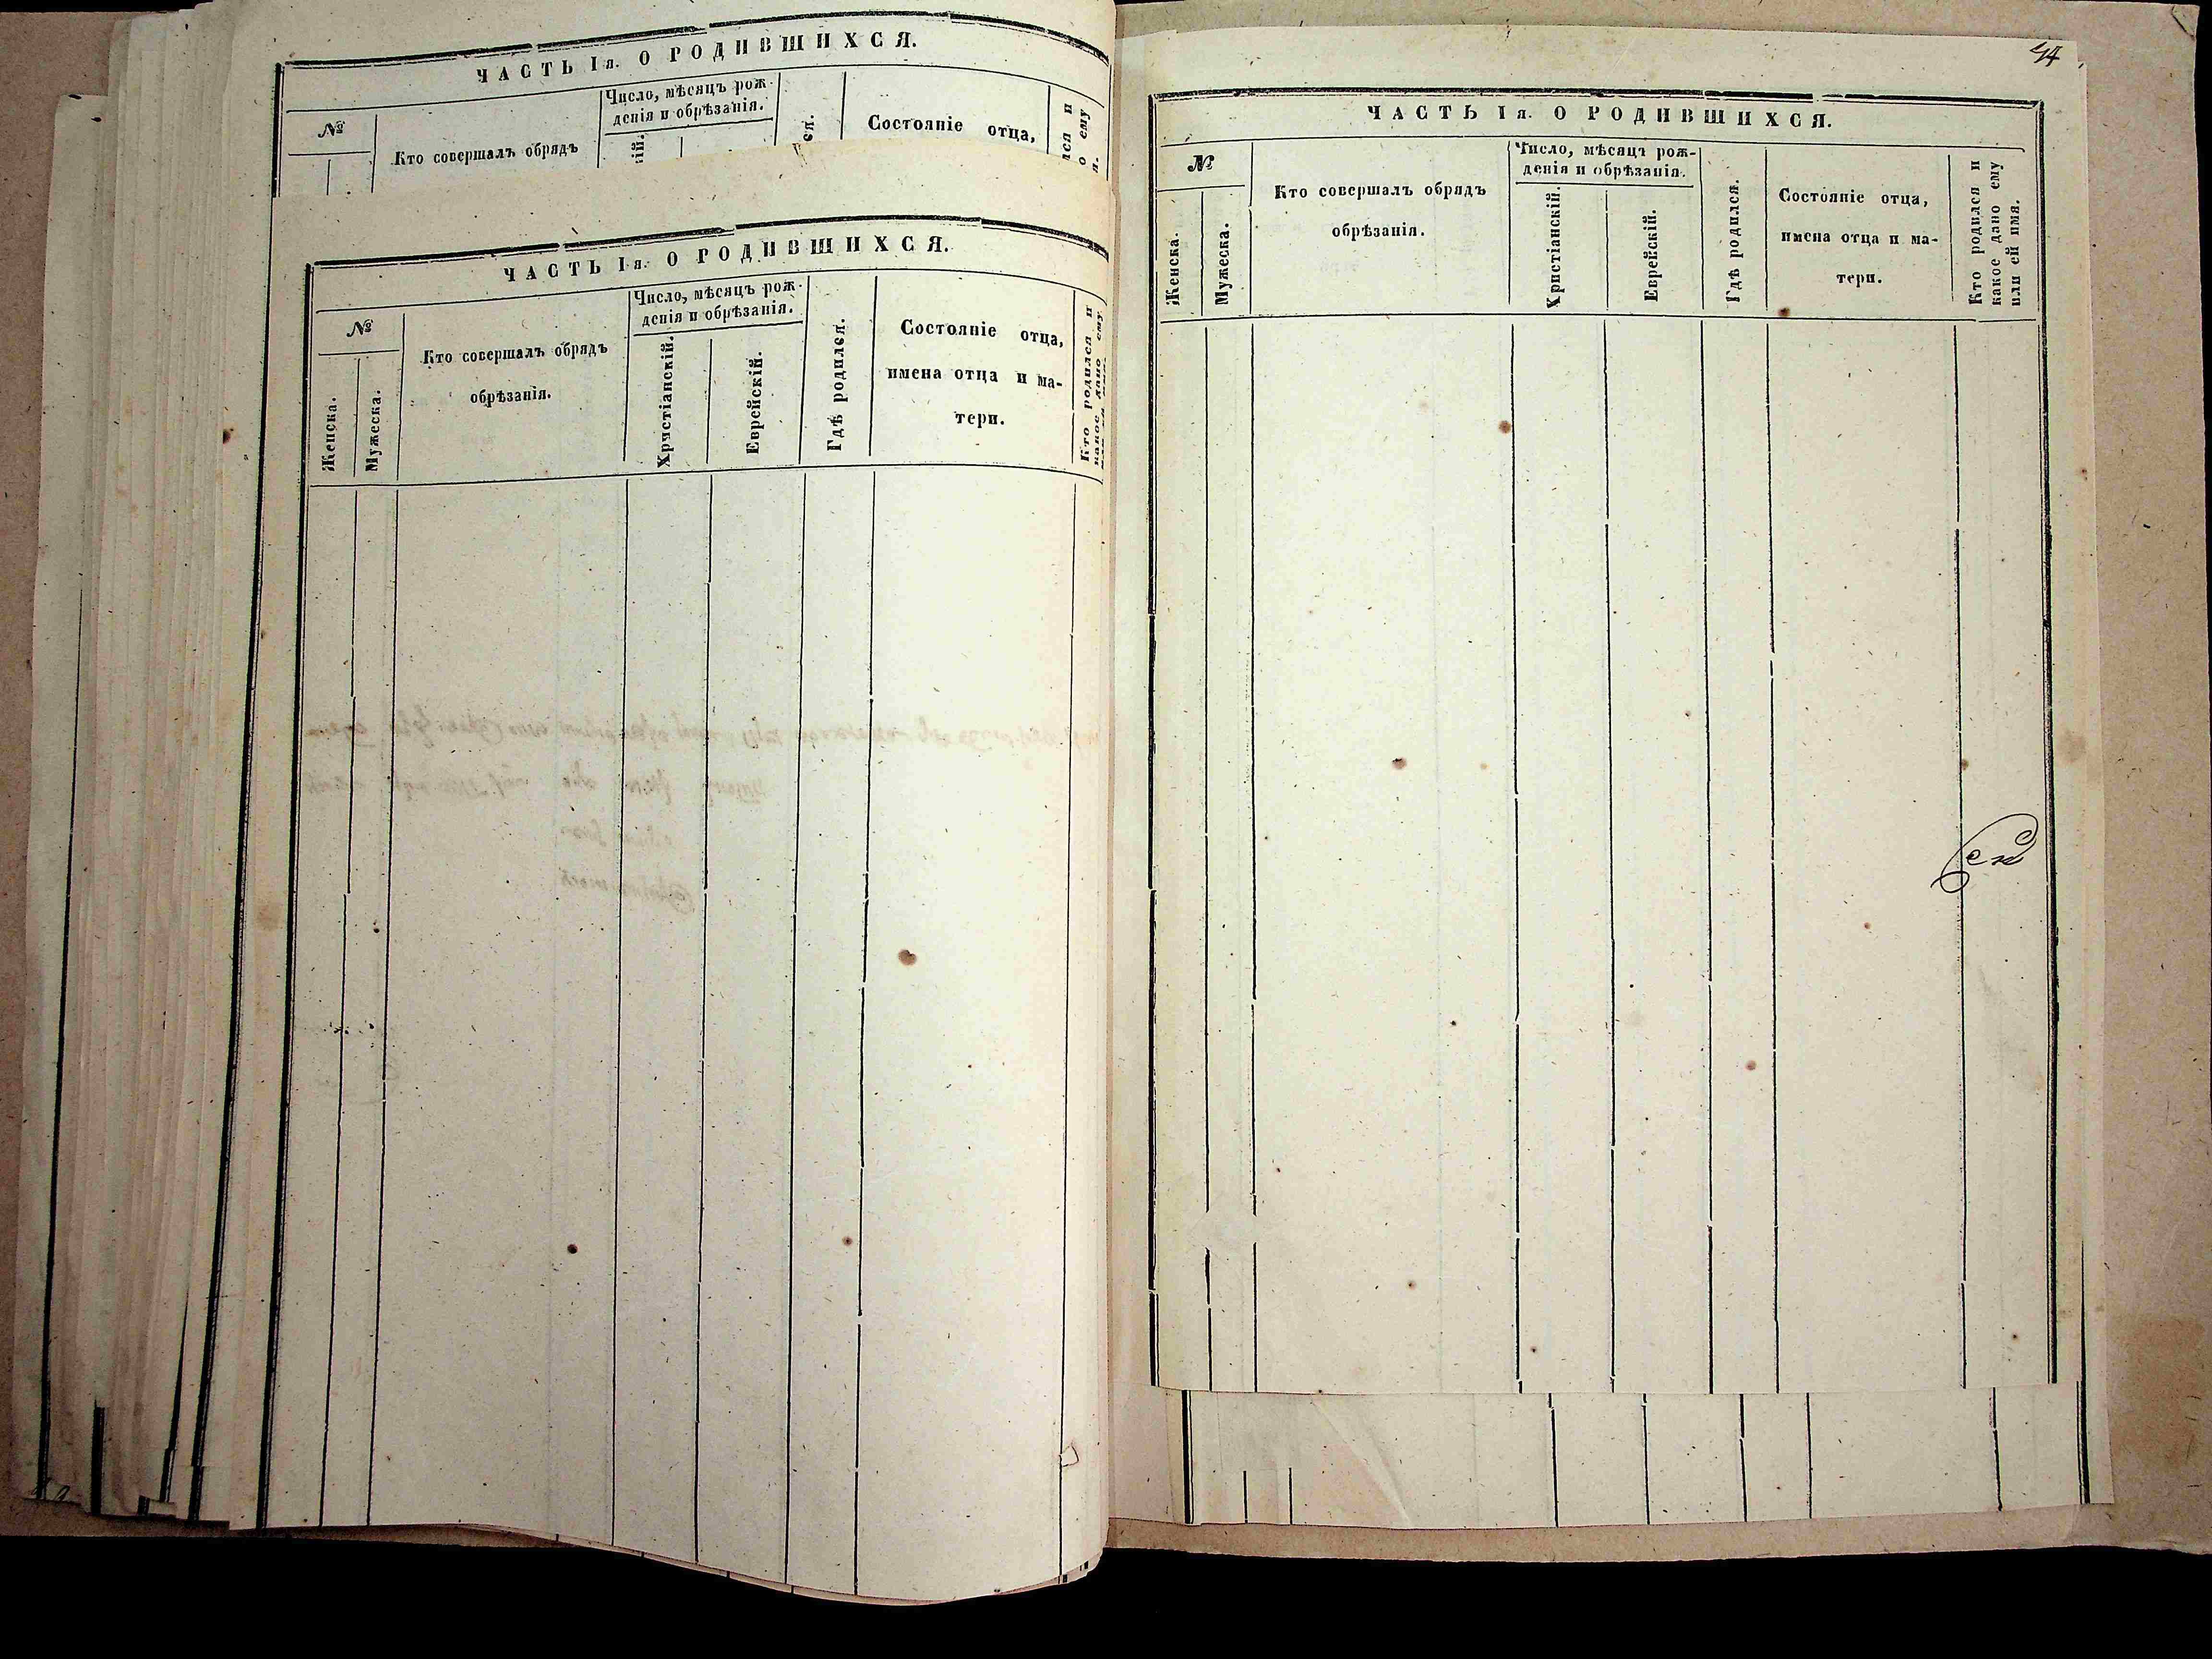 ЧАСТЬ Iя. О РОДИВШИХСЯ.
№
Кто совершалъ обрядъ
Число, мѣсяцъ рож-
денія и обрѣзанія.
ій.
ся.
Состояніе отца,
лся и
о ему
я.
ЧАСТЬ Iя. О РОДИВШИХСЯ.
№
Женска.
Мужеска.
Кто совершалъ обрядъ
обрѣзанія.
Число, мѣсяцъ рож-
денія и обрѣзанія.
Христіанскій.
Еврейскій.
Гдѣ родился.
Состояніе отца,
имена отца и ма-
тери.
Кто родился и
какое дано ему
ЧАСТЬ Iя. О РОДИВШИХСЯ.
№
Женска.
Мужеска.
Кто совершалъ обрядъ
обрѣзанія.
Число, мѣсяцъ рож-
денія и обрѣзанія.
Христіанскій.
Еврейскій.
Гдѣ родился.
Состояніе отца,
имена отца и ма-
тери.
Кто родился и
какое дано ему
или ей имя.